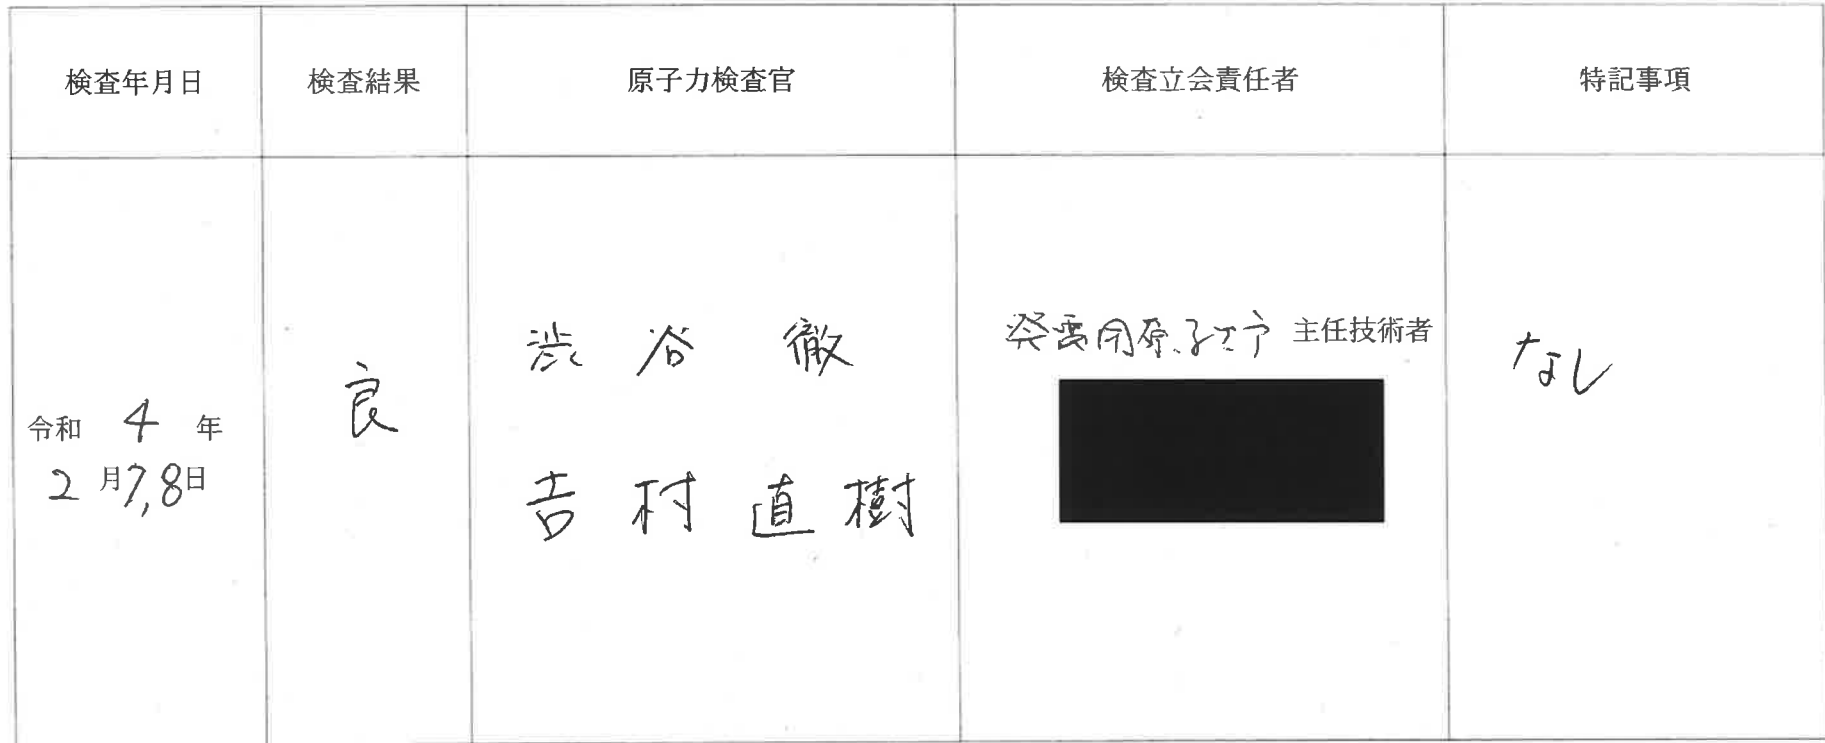 検査年月日 検査結果 原子力検査官 検査立会責任者 特記事項
令和 4 年
2 月 7,8 日
良
渋谷 徹
吉村直樹
発電用原子炉 主任技術者
なし